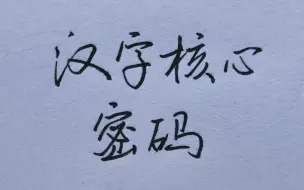 汉字核心
密码